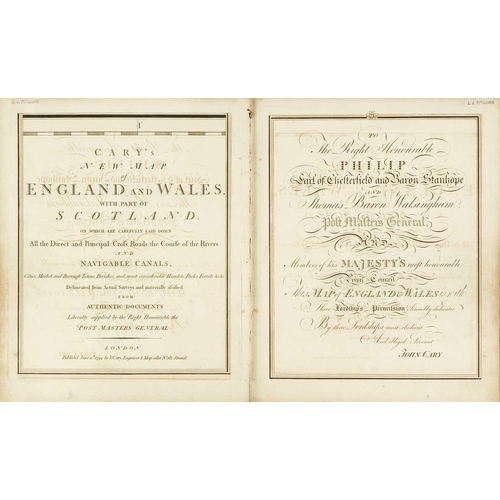 I
CARY'S
NEW MAP
of
ENGLAND AND WALES,
WITH PART OF
SCOTLAND.
ON WHICH ARE CAREFULLY LAID DOWN
All the Direct and Principal Cross Roads the Course of the Rivers
AND
NAVIGABLE CANALS,
Cities, Market and Borough Towns, Parishes, and most considerable Hamlets, Parks, Forests &c. &c.
Delineated from Actual Surveys and materially assisted
FROM
AUTHENTIC DOCUMENTS
Liberally supplied by the Right Honourable the
POST MASTERS GENERAL
LONDON:
Published June 11th 1794 by J. Cary, Engraver & Map seller No. 181 Strand.
TO
The Right Honourable
PHILIP
Earl of Chesterfield and Baron Stanhope
AND
Thomas Baron Walsingham
Post Masters General,
AND
Members of his MAJESTY'S most honourable
Privy Council
This MAP of ENGLAND & WALES is with
Their Lordships Permission humbly dedicated
By their Lordships most obedient
And obliged Servant
JOHN CARY